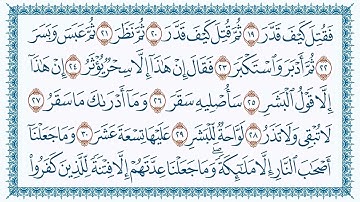 فَقُتِلَ كَيْفَ قَدَّرَ ١٩ ثُمَّ قُتِلَ كَيْفَ قَدَّرَ ٢٠ ثُمَّ نَظَرَ ٢١ ثُمَّ عَبَسَ وَبَسَرَ
٢٢ ثُمَّ أَدْبَرَ وَٱسْتَكْبَرَ ٢٣ فَقَالَ إِنْ هَٰذَآ إِلَّا سِحْرٌ يُؤْثَرُ ٢٤ إِنْ هَٰذَآ
إِلَّا قَوْلُ ٱلْبَشَرِ ٢٥ سَأُصْلِيهِ سَقَرَ ٢٦ وَمَآ أَدْرَىٰكَ مَا سَقَرُ ٢٧
لَا تُبْقِى وَلَا تَذَرُ ٢٨ لَوَّاحَةٌ لِّلْبَشَرِ ٢٩ عَلَيْهَا تِسْعَةَ عَشَرَ ٣٠ وَمَا جَعَلْنَآ
أَصْحَٰبَ ٱلنَّارِ إِلَّا مَلَٰٓئِكَةً ۙ وَمَا جَعَلْنَا عِدَّتَهُمْ إِلَّا فِتْنَةً لِّلَّذِينَ كَفَرُوا۟